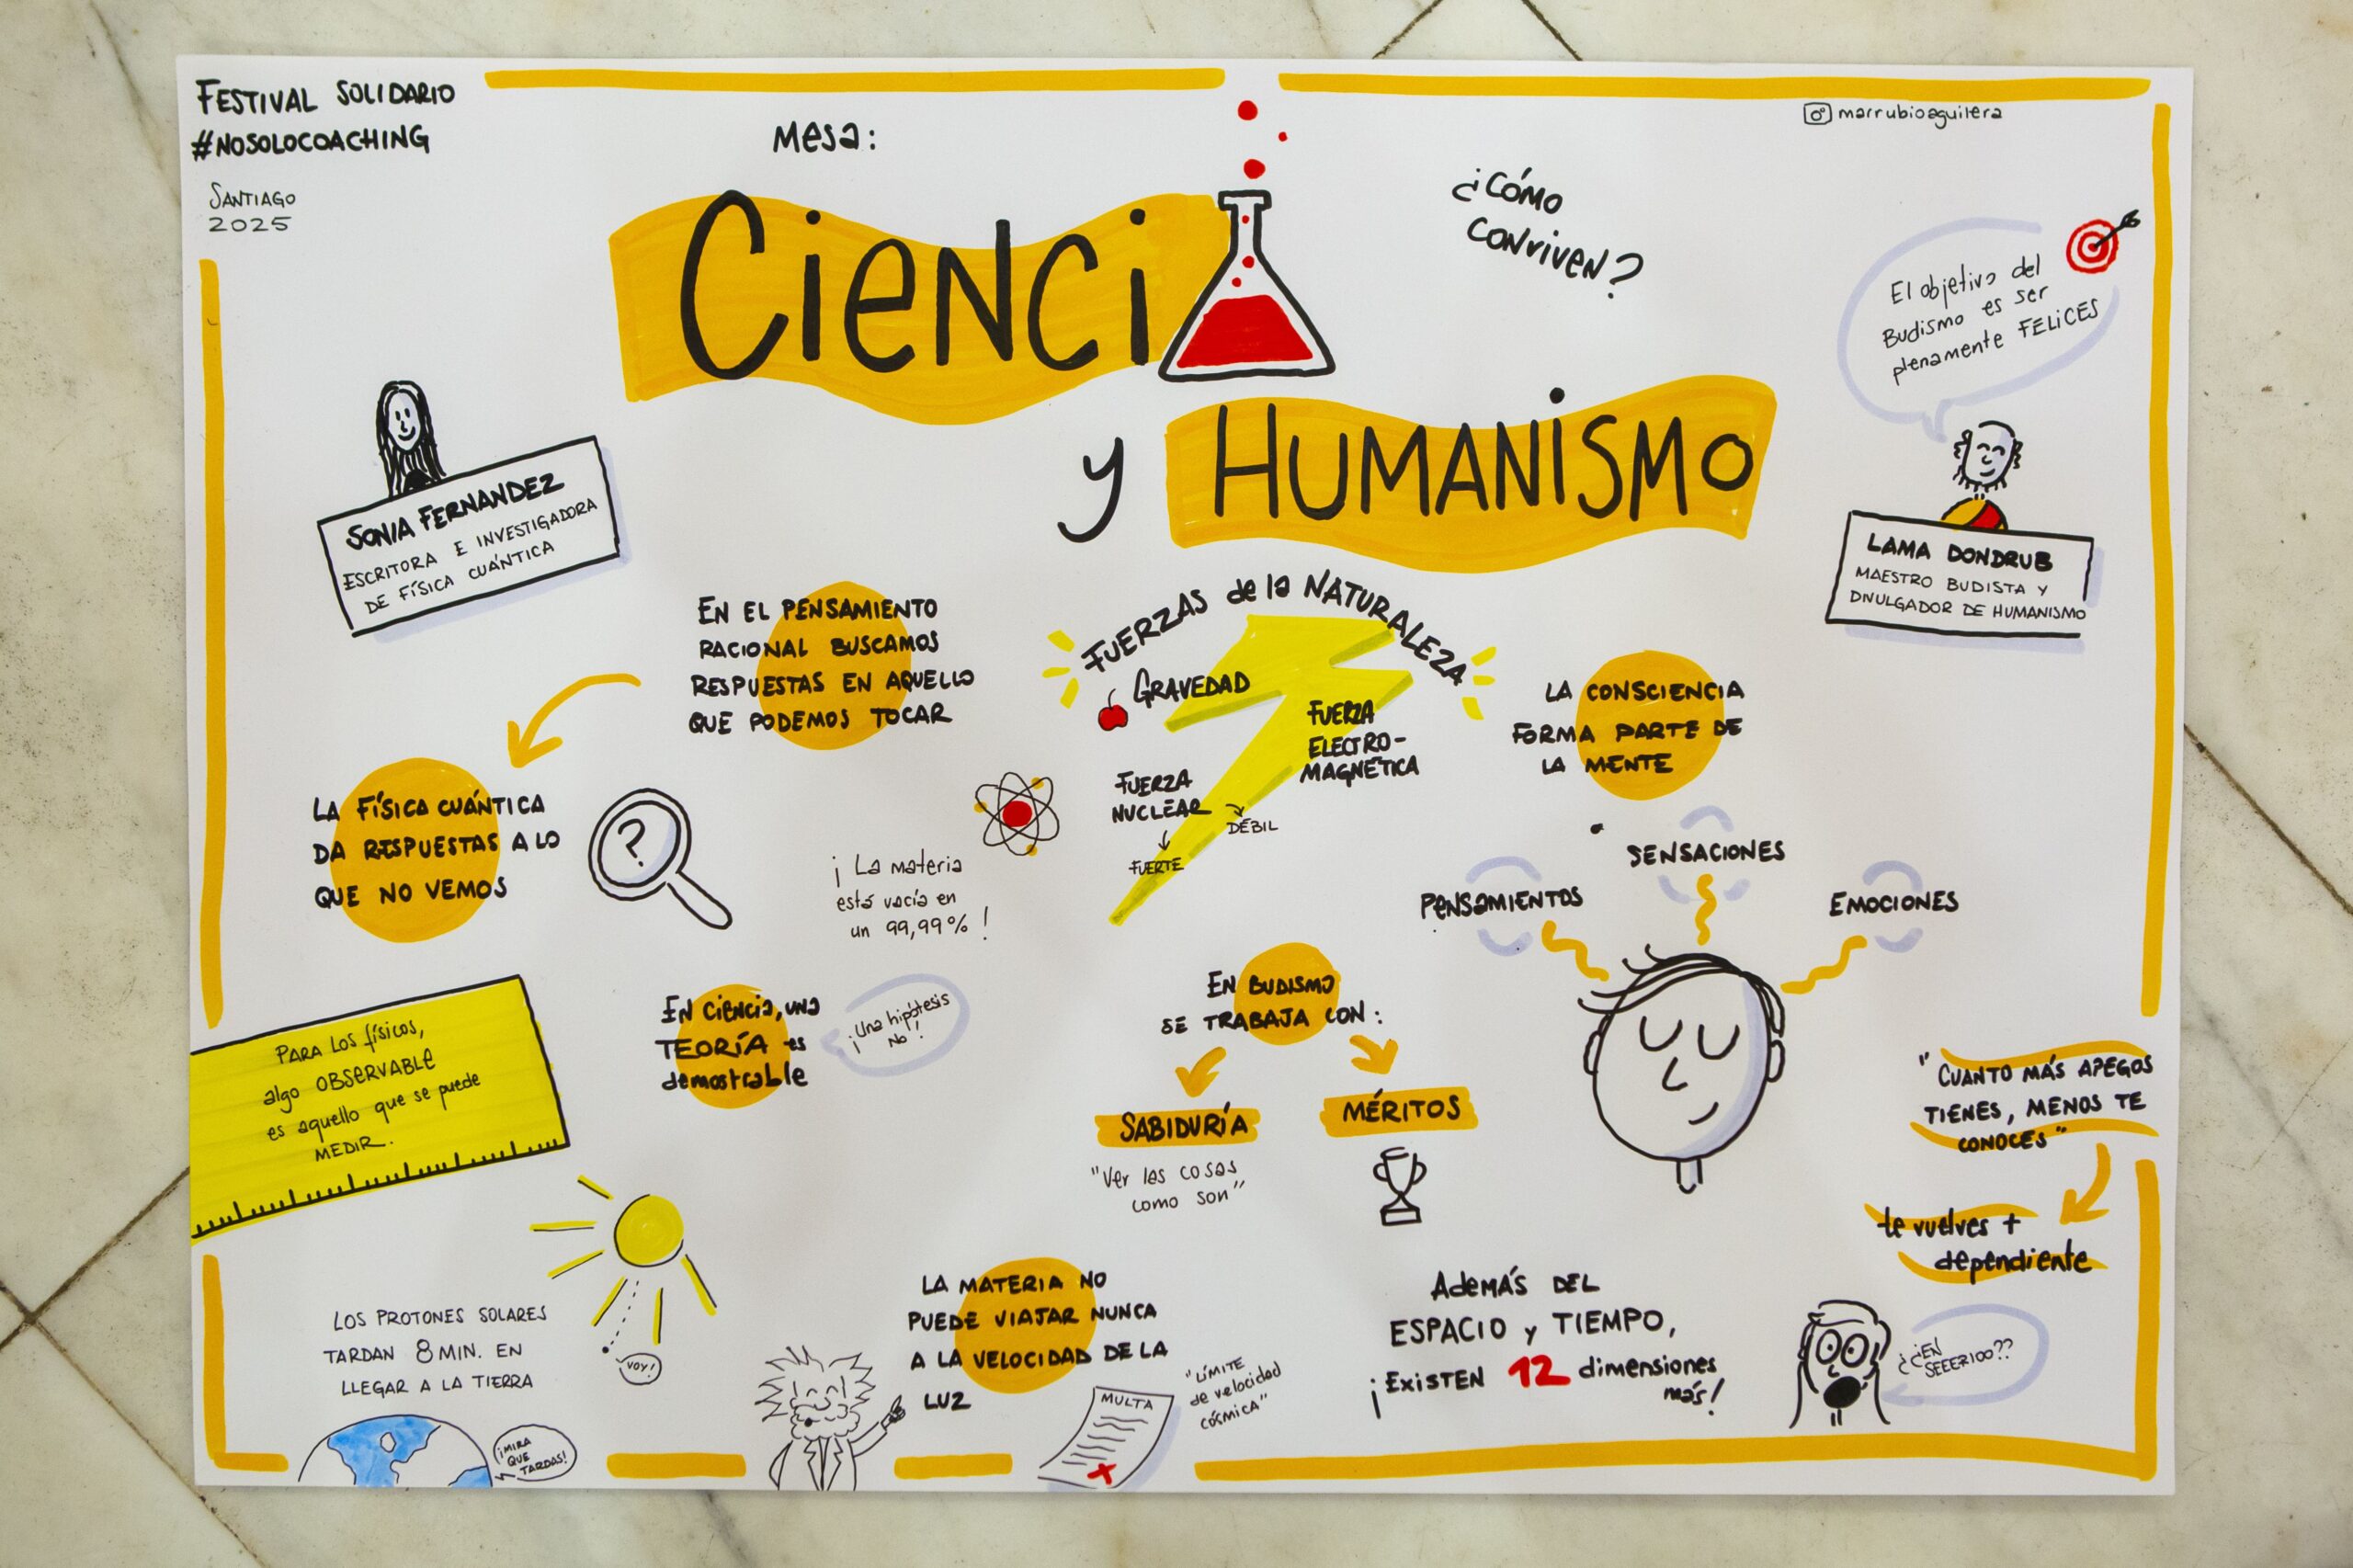 FESTIVAL SOLIDARIO
#NOSOLOCOACHING
SANTIAGO
2025
Mesa:
CIENCIA
y HUMANISMO
¿CÓMO
CONVIVEN?
marrubioaguilera
El objetivo del
Budismo es ser
plenamente FELICES
SONIA FERNANDEZ
ESCRITORA E INVESTIGADORA
DE FÍSICA CUÁNTICA
LAMA DONDRUB
MAESTRO BUDISTA Y
DIVULGADOR DE HUMANISMO
EN EL PENSAMIENTO
RACIONAL BUSCAMOS
RESPUESTAS EN AQUELLO
QUE PODEMOS TOCAR
LA FÍSICA CUÁNTICA
DA RESPUESTAS A LO
QUE NO VEMOS
?
FUERZAS de la NATURALEZA
GRAVEDAD
FUERZA
ELECTRO-
MAGNÉTICA
FUERZA
NUCLEAR
DÉBIL
FUERTE
¡La materia
está vacía en
un 99,99%!
LA CONSCIENCIA
FORMA PARTE DE
LA MENTE
SENSACIONES
PENSAMIENTOS
EMOCIONES
PARA LOS físicos,
algo OBSERVABLE
es aquello que se puede
MEDIR.
EN CIENCIA, UNA
TEORÍA es
demostrable
¡Una hipótesis
NO!
EN BUDISMO
SE TRABAJA CON:
SABIDURÍA
"Ver las cosas
como son"
MÉRITOS
"CUANTO MÁS APEGOS
TIENES, MENOS TE
CONOCES"
te vuelves +
dependiente
LOS PROTONES SOLARES
TARDAN 8 MIN. EN
LLEGAR A LA TIERRA
VOY!
¡MIRA
QUE
TARDAS!
LA MATERIA NO
PUEDE VIAJAR NUNCA
A LA VELOCIDAD DE LA
LUZ
MULTA
"LÍMITE
de velocidad
cósmica"
ADEMÁS DEL
ESPACIO y TIEMPO,
¡EXISTEN 12 dimensiones
más!
¿¿EN
SEEERIOO??